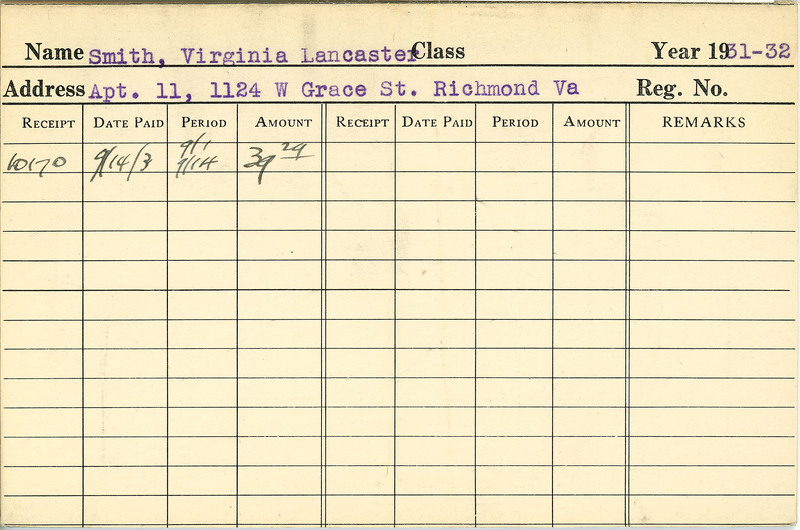 Name Smith, Virginia Lancaster Class Year 1931-32
Address Apt. 11, 1124 W Grace St. Richmond Va Reg. No.
RECEIPT DATE PAID PERIOD AMOUNT RECEIPT DATE PAID PERIOD AMOUNT REMARKS
9/1
10170 9/14/3 9/14 39 24